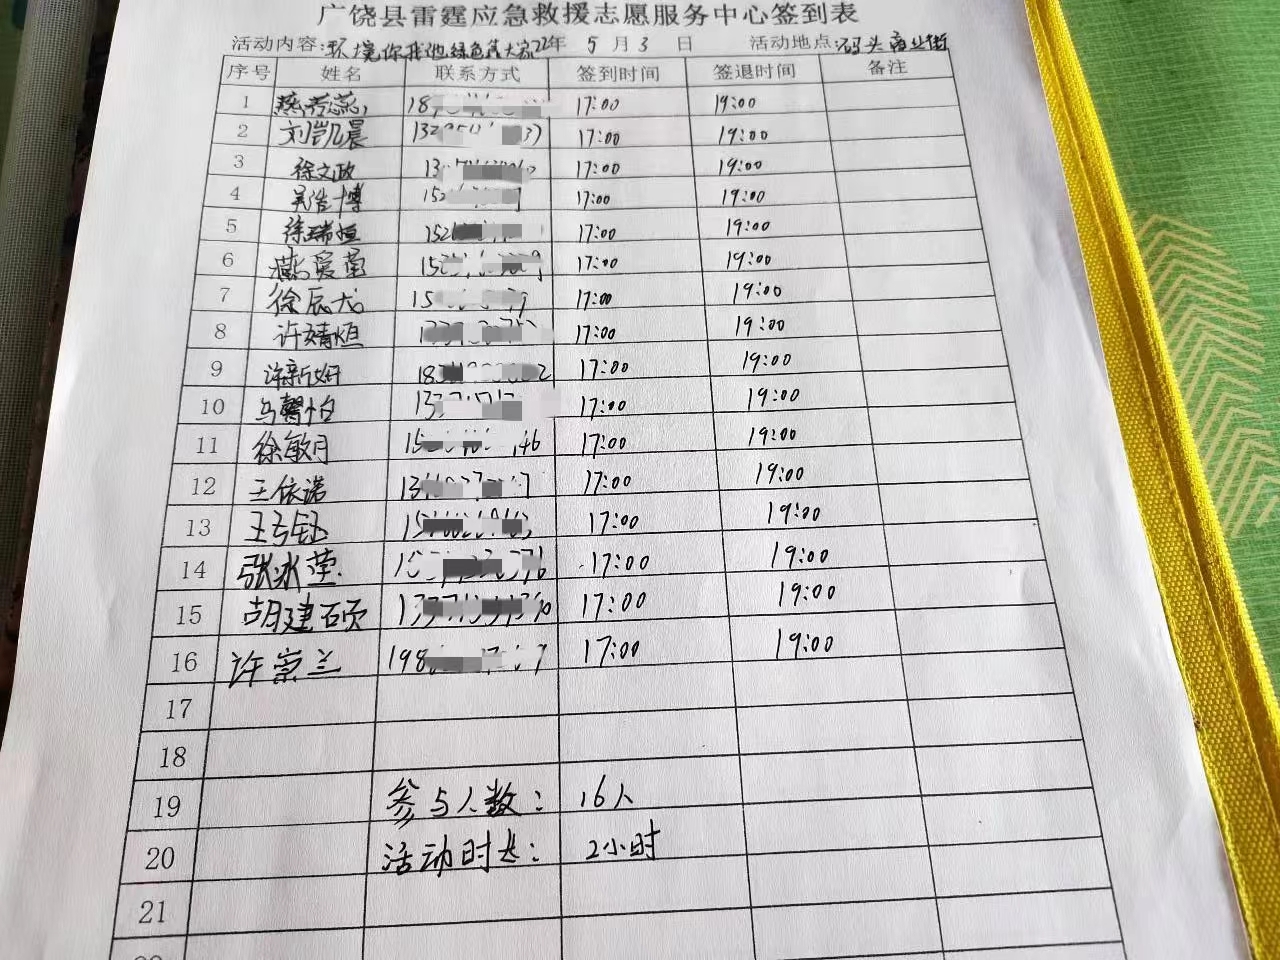 广饶县雷霆应急救援志愿服务中心签到表
活动内容:环境你我他绿色靠大家 22年 5 月 3 日 活动地点:码头商业街
序号 姓名 联系方式 签到时间 签退时间 备注
1 17:00 19:00
2 刘凯晨 17:00 19:00
3 徐文政 17:00 19:00
4 吴浩博 17:00 19:00
5 徐瑞恒 17:00 19:00
6 17:00 19:00
7 徐辰龙 17:00 19:00
8 许婧烜 17:00 19:00
9 许新妤 17:00 19:00
10 马馨怡 17:00 19:00
11 徐敏月 17:00 19:00
12 王依诺 17:00 19:00
13 17:00 19:00
14 张冰莹 17:00 19:00
15 胡建硕 17:00 19:00
16 许崇兰 17:00 19:00
17
18
19 参与人数: 16人
20 活动时长: 2小时
21